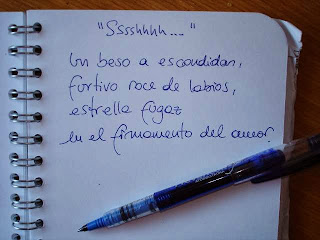 "Sssshhhh...."
Un beso a escondidas,
furtivo roce de labios,
estrella fugaz
en el firmamento del amor.